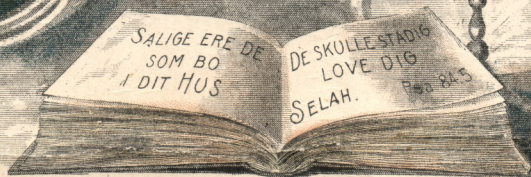 SALIGE ERE DE
SOM BO
I DIT HUS
DE SKULLE STADIG
LOVE DIG
Psa 84.5
SELAH.